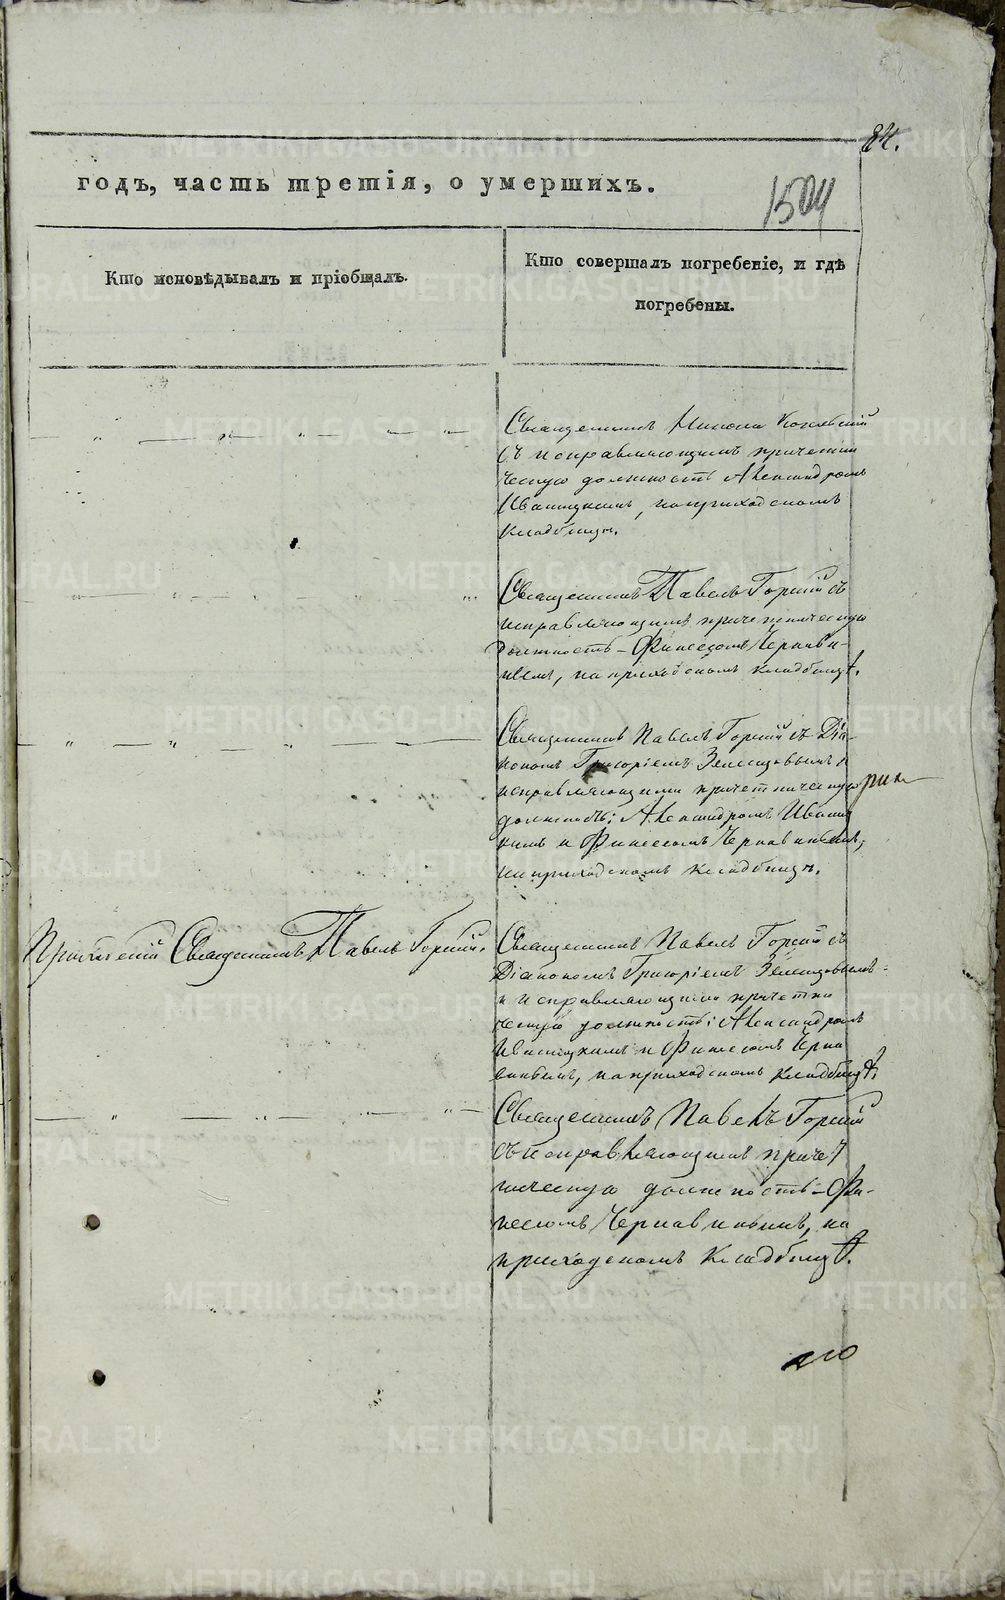 84.
годъ, часть третія, о умершихъ.
1504
Кто исповѣдывалъ и пріобщалъ.
Кто совершалъ погребеніе, и гдѣ
погребены.
Священникъ
съ исправляющимъ причетни
ческую должность Александромъ
Ивашукимъ, на приходскомъ
кладбищѣ.
Священникъ Павелъ Горній съ
исправляющимъ причетническую
должность – Финеесомъ Чернави-
нымъ, на приходскомъ кладбищѣ.
Священникъ Павелъ Горній съ Діа-
кономъ Григоріемъ и
исправляющими причетническую
должность: Александромъ
и Финеесомъ
на приходскомъ кладбищѣ.
Священникъ Павелъ Горній.
Священникъ Павелъ Горній съ
Діакономъ Григоріемъ
и исправляющими причетни
ческую должность: Александромъ
и Финеесомъ Черна
винымъ, на приходскомъ кладбищѣ.
Священникъ Павелъ Горній
съ исправляющимъ причет
ническую должность – Фи-
неесомъ Чернавинымъ, на
приходскомъ кладбищѣ.
METRIKI.GASO-URAL.RU